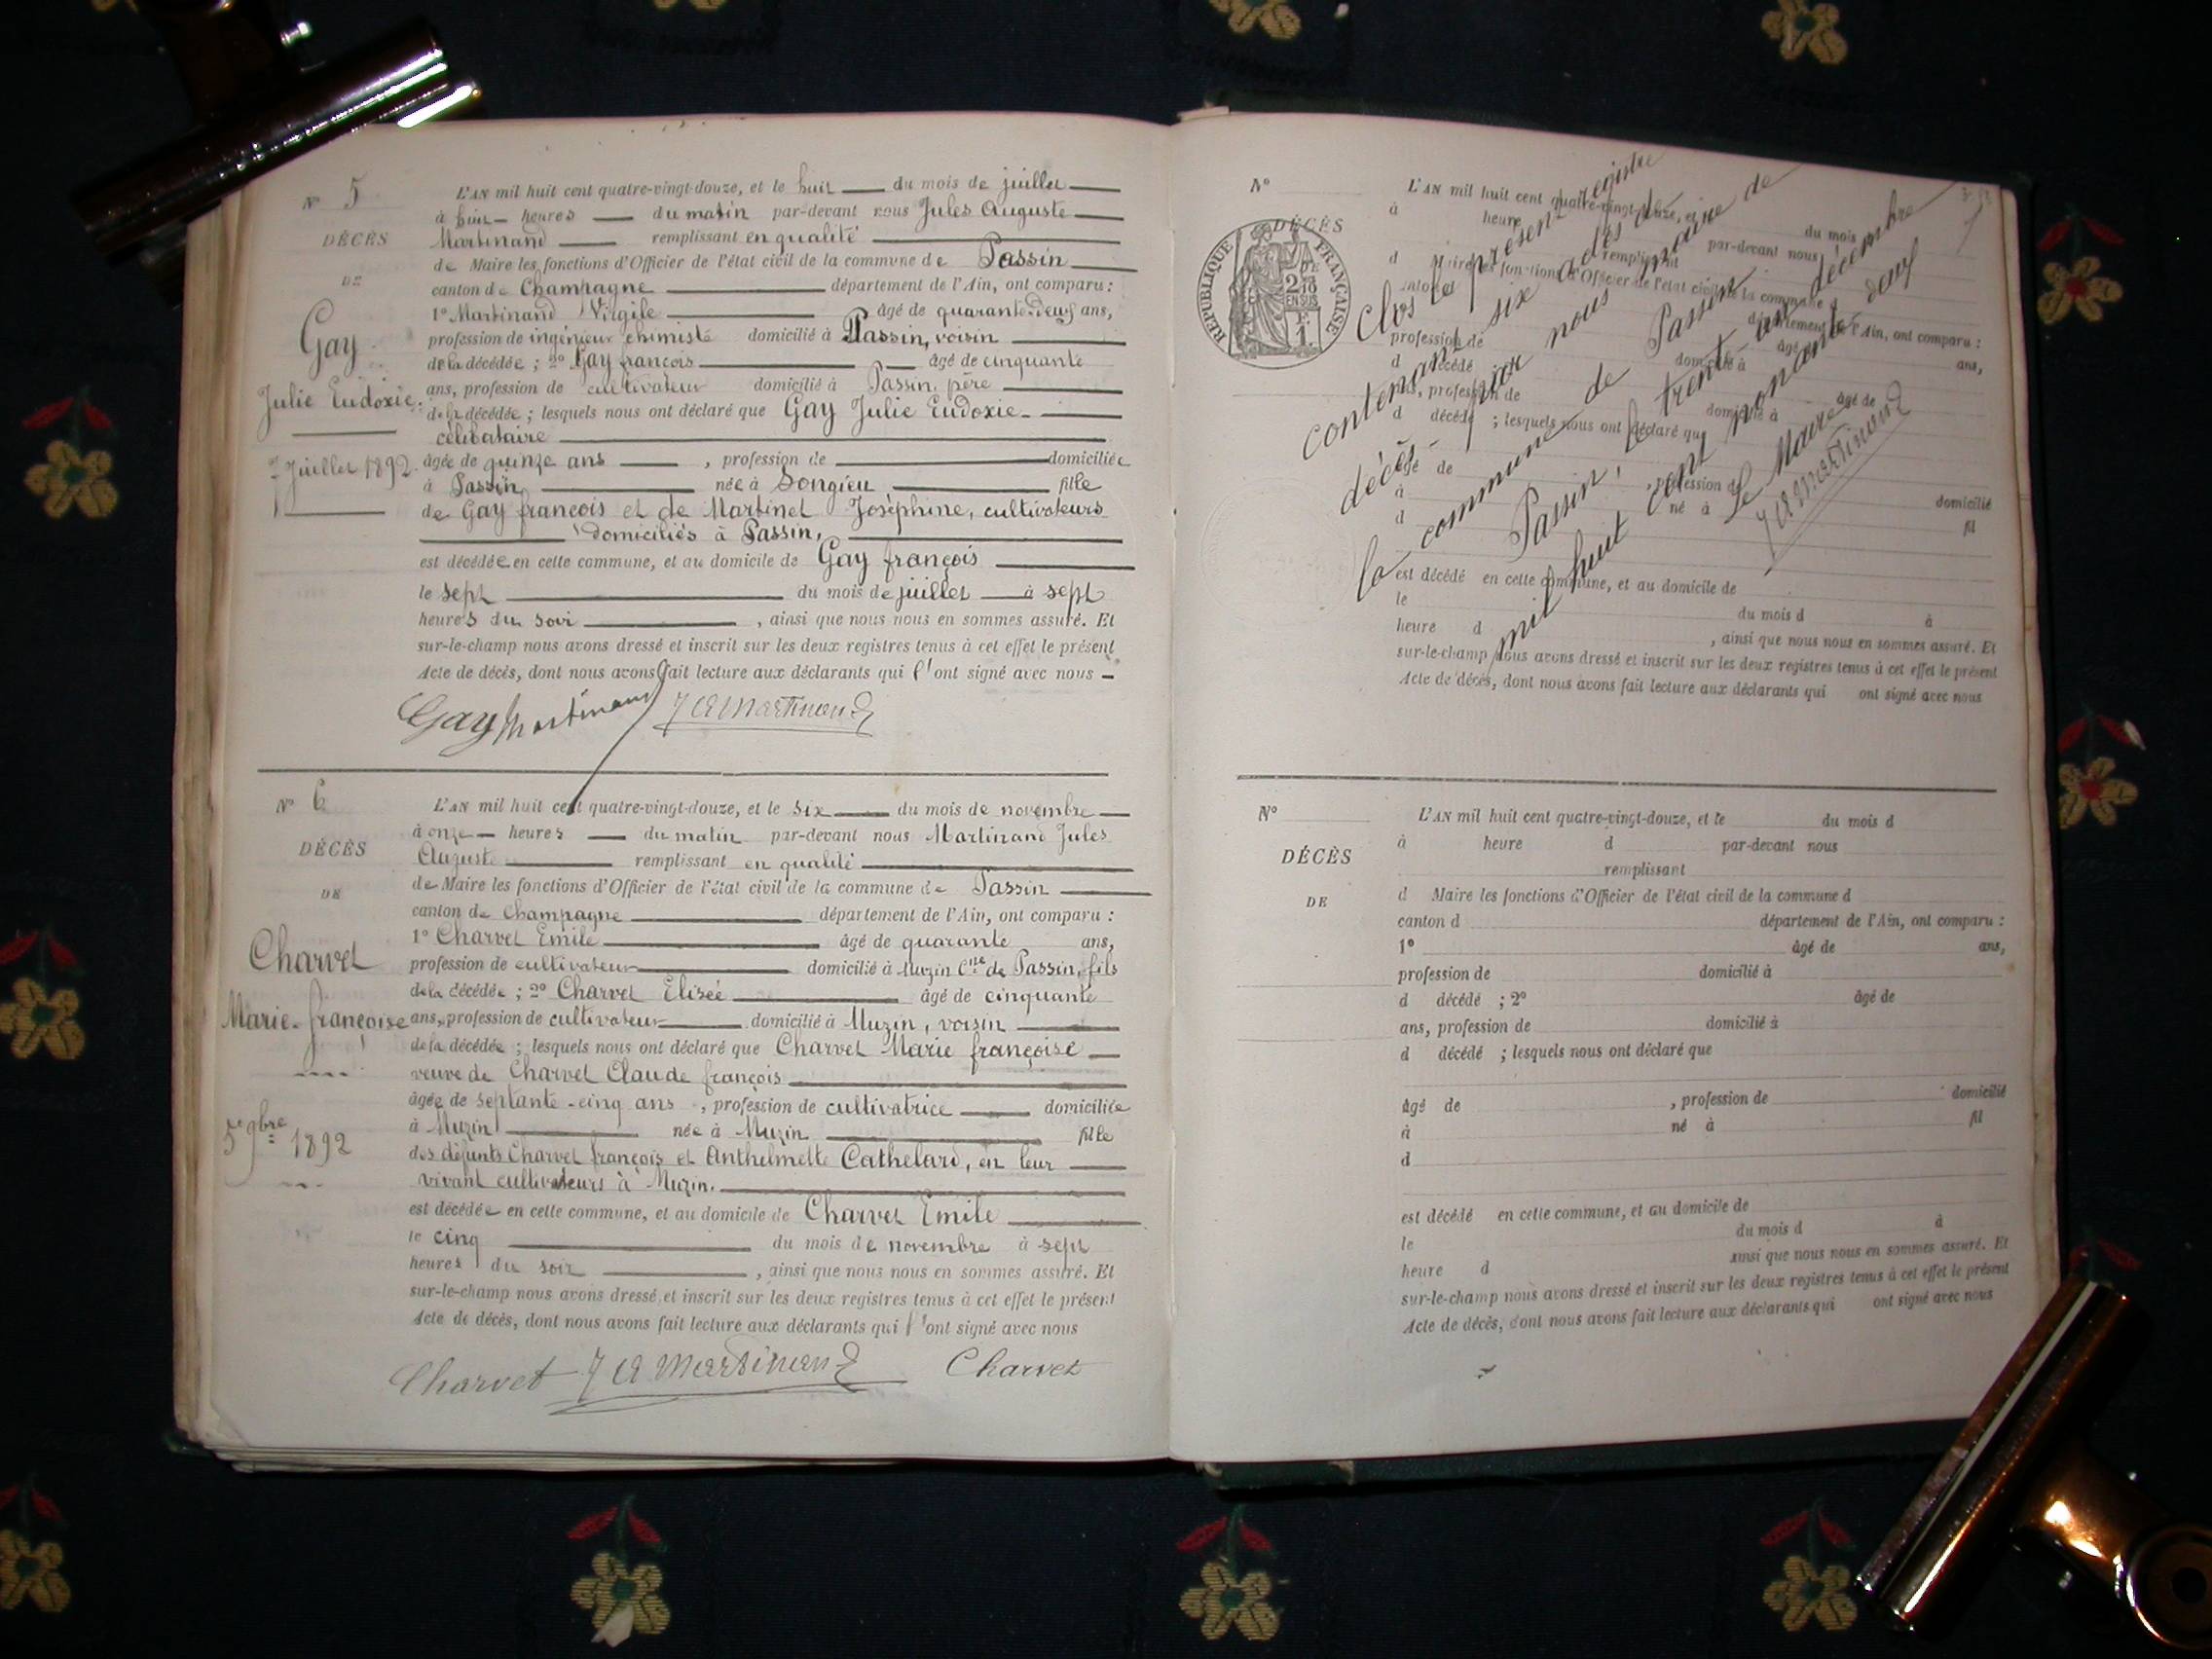 N° 5
DÉCÈS
DE
Gay
Julie Eudoxie
Juillet 1892.
L'AN mil huit cent quatre-vingt-douze, et le huit du mois de juillet
à huit heures du matin par-devant nous Jules Auguste
Martinand remplissant en qualité
de Maire les fonctions d'Officier de l'état civil de la commune de Passin
canton de Champagne département de l'Ain, ont comparu :
1° Martinand Virgile âgé de quarante-deux ans,
profession de ingénieur chimiste domicilié à Passin, voisin
de la décédée ; 2° Gay françois âgé de cinquante
ans, profession de cultivateur domicilié à Passin, père
de la décédée ; lesquels nous ont déclaré que Gay Julie Eudoxie
célibataire
âgée de quinze ans , profession de domiciliée
à Passin née à Songieu fille
de Gay françois et de Martinet Joséphine, cultivateurs
domiciliés à Passin,
est décédée en cette commune, et au domicile de Gay françois
le sept du mois de juillet à sept
heures du soir , ainsi que nous nous en sommes assuré. Et
sur-le-champ nous avons dressé et inscrit sur les deux registres tenus à cet effet le présent
Acte de décès, dont nous avons fait lecture aux déclarants qui l'ont signé avec nous
Gay Martinand J A Martinand
N° 6
DÉCÈS
DE
Charvet
Marie-françoise
5 9bre 1892
L'AN mil huit cent quatre-vingt-douze, et le six du mois de novembre
à onze heures du matin par-devant nous Martinand Jules
Auguste remplissant en qualité
de Maire les fonctions d'Officier de l'état civil de la commune de Passin
canton de Champagne département de l'Ain, ont comparu :
1° Charvet Emile âgé de quarante ans,
profession de cultivateur domicilié à Muzin Cne de Passin, fils
de la décédée ; 2° Charvet Elisée âgé de cinquante
ans, profession de cultivateur domicilié à Muzin, voisin
de la décédée ; lesquels nous ont déclaré que Charvet Marie françoise
veuve de Charvet Claude françois
âgée de septante-cinq ans , profession de cultivatrice domiciliée
à Muzin née à Muzin fille
des défunts Charvet françois et Anthelmette Cathelard, en leur
vivant cultivateurs à Muzin.
est décédée en cette commune, et au domicile de Charvet Emile
le cinq du mois de novembre à sept
heures du soir , ainsi que nous nous en sommes assuré. Et
sur-le-champ nous avons dressé et inscrit sur les deux registres tenus à cet effet le présent
Acte de décès, dont nous avons fait lecture aux déclarants qui l'ont signé avec nous
Charvet J A Martinand Charvet
N°
DÉCÈS
RÉPUBLIQUE FRANÇAISE
2/10
EN SUS
F.
1.
L'AN mil huit cent quatre-vingt-douze, et
à heure du mois
par-devant nous
remplissant
d Maire les fonctions d'Officier de l'état civil de la commune d
canton département de l'Ain, ont comparu :
âgé ans,
profession de domicilié à
d décédé âgé de
ans, profession de domicilié à
d décédé ; lesquels nous ont déclaré que
âgé de , profession d domicilié
à né à fil
d
est décédé en cette commune, et au domicile de
le du mois d à
heure d , ainsi que nous nous en sommes assuré. Et
sur-le-champ nous avons dressé et inscrit sur les deux registres tenus à cet effet le présent
Acte de décès, dont nous avons fait lecture aux déclarants qui ont signé avec nous
Clos le présent registre
contenant six actes de
décès par nous maire de
la commune de Passin
Passin, le trente-un décembre
mil huit cent nonante deux
Le Maire
J A Martinand
N°
DÉCÈS
DE
L'AN mil huit cent quatre-vingt-douze, et le du mois d
à heure d par-devant nous
remplissant
d Maire les fonctions d'Officier de l'état civil de la commune d
canton d département de l'Ain, ont comparu :
1° âgé de ans,
profession de domicilié à
d décédé ; 2° âgé de
ans, profession de domicilié à
d décédé ; lesquels nous ont déclaré que
âgé de , profession de domicilié
à né à fil
d
est décédé en cette commune, et au domicile de
le du mois d à
heure d ainsi que nous nous en sommes assuré. Et
sur-le-champ nous avons dressé et inscrit sur les deux registres tenus à cet effet le présent
Acte de décès, dont nous avons fait lecture aux déclarants qui ont signé avec nous